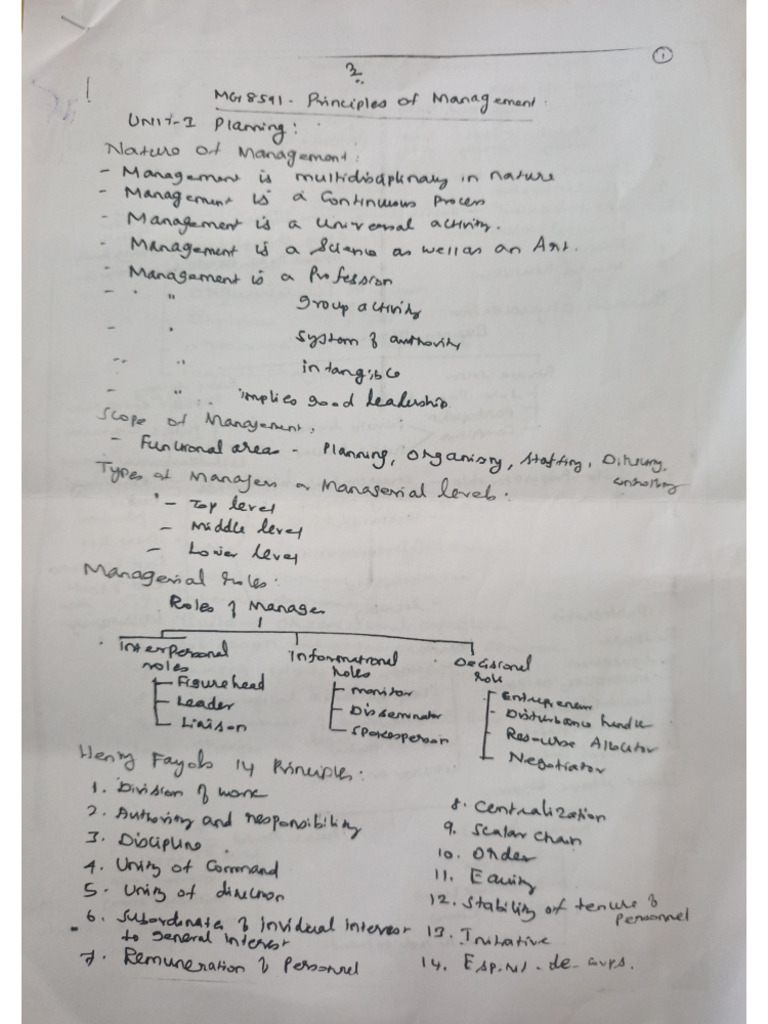 1
3
MG8591. Principles of Management.
UNIT-I Planning:
Nature of Management:
- Management is multidisciplinary in nature
- Management is a Continuous Process
- Management is a Universal activity.
- Management is a Science as well as an Art.
- Management is a Profession
- " " group activity
- " System of authority
- " " intangible
- " implies good Leadership.
Scope of Management:
- Functional areas - Planning, Organising, Staffing, Directing,
controlling
Types of Managers or Managerial levels:
- Top level
- Middle level
- Lower level
Managerial roles:
Roles of Manager
Interpersonal roles
Figurehead
Leader
Liaison
Informational Roles
monitor
Disseminator
Spokesperson
Decisional role
Entrepreneur
Disturbance handle
Resource Allocator
Negotiator
Henry Fayols 14 Principles:
1. Division of work
2. Authority and responsibility
3. Discipline
4. Unity of Command
5. Unity of direction
6. Subordinate of Invidual Interest
to general interest
7. Remuneration of Personnel
8. Centralization
9. Scalar Chain
10. Order
11. Equity
12. Stability of tenure of
personnel
13. Initiative
14. Esp.rit-de-